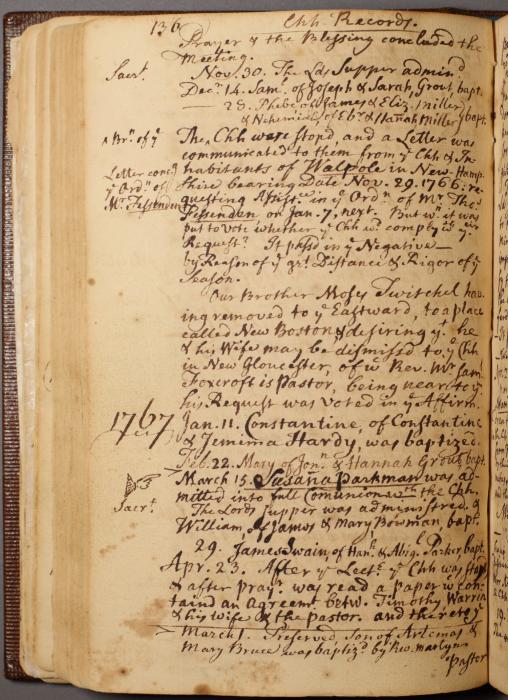 136 Chh Records.
Prayer & the Blessing concluded the
Meeting.
Sacrt. Nov. 30. The Lds Supper admind
Decr. 14. Saml. of Joseph & Sarah Grout, bapt.
— 28. Phebe of James & Eliz. Miller
& Nehemiah of Ebr. & Hañah Miller bapt.
A Br. of ye The Chh were stopd, and a Letter was
communicated to them from ye Chh & In-
Letter conc habitants of Walpole in New-Hamp-
ye Ordn. of shire bearing Date Nov. 29. 1766: re-
Mr. Fessenden questing Assistce in ye Ordn. of Mr. Thos
Fessenden on Jan. 7, next. But wn. it was
put to vote whether ye Chh wd. comply wth yir
Request? It passd in ye Negative —
by Reason of ye grt. Distance & Rigor of ye
Season.
Our Brother Mosy Twitchel hav-
ing removed to ye Eastward, to a place
called New Boston & desiring yt. he
& his Wife may be dismissd to ye Chh
in New Gloucester, of wc Rev. Mr. Sam.
Foxcroft is Pastor, being near to ym.
his Request was voted in ye Affirm.
1767 Jan. 11. Constantine, of Constantine
& Jemima Hardy, was baptized.
Feb. 22. Mary of Jonn. & Hannah Grout bapt.
March 15. Susaña Parkman was ad-
mitted into full Comunion wth the Chh.
Sacrt. The Lords Supper was administred. &
William, of James & Mary Bowman, bapt.
29. James Swain of Hanh. & Abigl. Parker, bapt.
Apr. 23. After ye Lecte. ye Chh was stopd
& after prayr. was read a paper wc con-
taind an agreemt. betw. Timothy Warrin
& his wife & the pastor. and there
March 1. Preserved, Son of Artemas &
Mary Bruce was baptizd by Rev. Martyn
Pastor